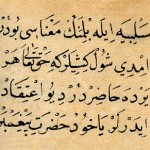 سلبیه ایله بلمك معناسی بودر
امدی شول كشیلر كه حق تعالی هر
یرده حاضردر دیو اعتقاد
ایدرلر یا خود حضرت پیغمبر